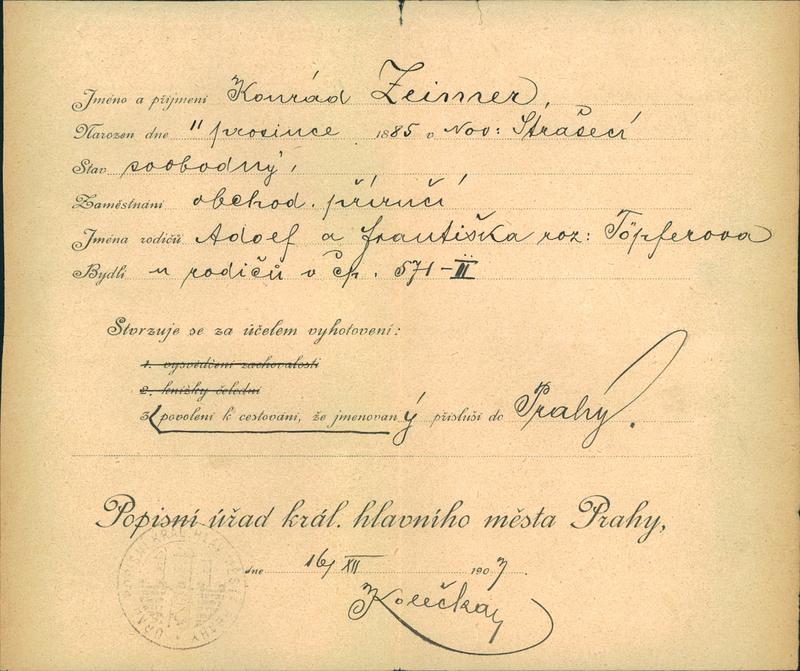 Jméno a příjmení Konrád Zeimer,
Narozen dne 11 prosince 1885 v Nov: Strašecí
Stav svobodný,
Zaměstnání obchod. příručí
Jména rodičů Adolf a Františka roz: Töpferova
Bydlí u rodičů v čp. 571-II
Stvrzuje se za účelem vyhotovení:
1. vysvědčení zachovalosti
2. knížky čelední
3. povolení k cestování, že jmenovaný přísluší do Prahy.
Popisní úřad král. hlavního města Prahy,
dne 16/XII 1907.